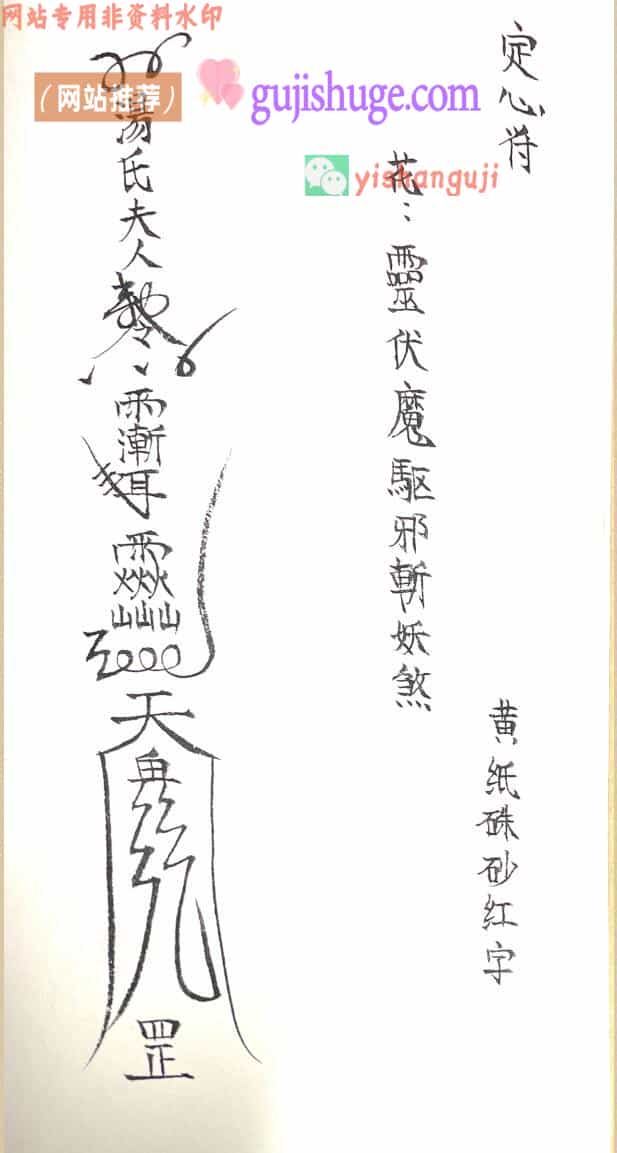 网站专用非资料水印
（网站推荐）
gujishuge.com
yishanguji
定心符
花：靈伏魔駆邪斬妖煞
黄纸硃砂红字
湯氏夫人
天
罡